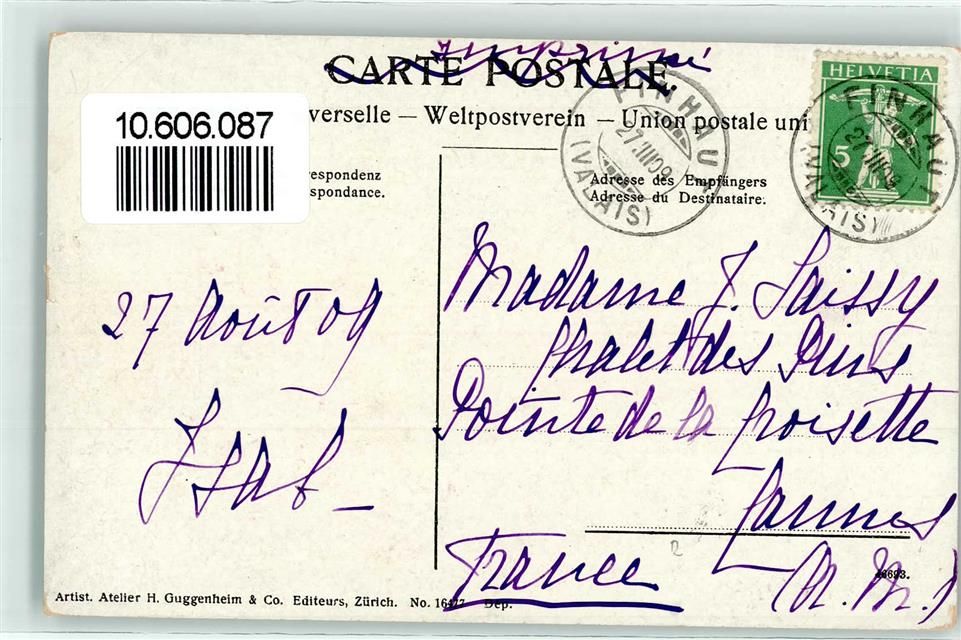 Imprimé
CARTE POSTALE.
10.606.087
verselle — Weltpostverein — Union postale uni
respondenz
spondance.
Adresse des Empfängers
Adresse du Destinataire.
HELVETIA
5
FINHAUT
27.VIII.09
(VALAIS)
FINHAUT
27.VIII.09
(VALAIS)
27 Août 09
Isab
Madame J. Saissy
Chalet des Pins
Pointe de la Croisette
Cannes
(A. M.)
France
16693.
Artist. Atelier H. Guggenheim & Co. Editeurs, Zürich. No. 16477 Dep.